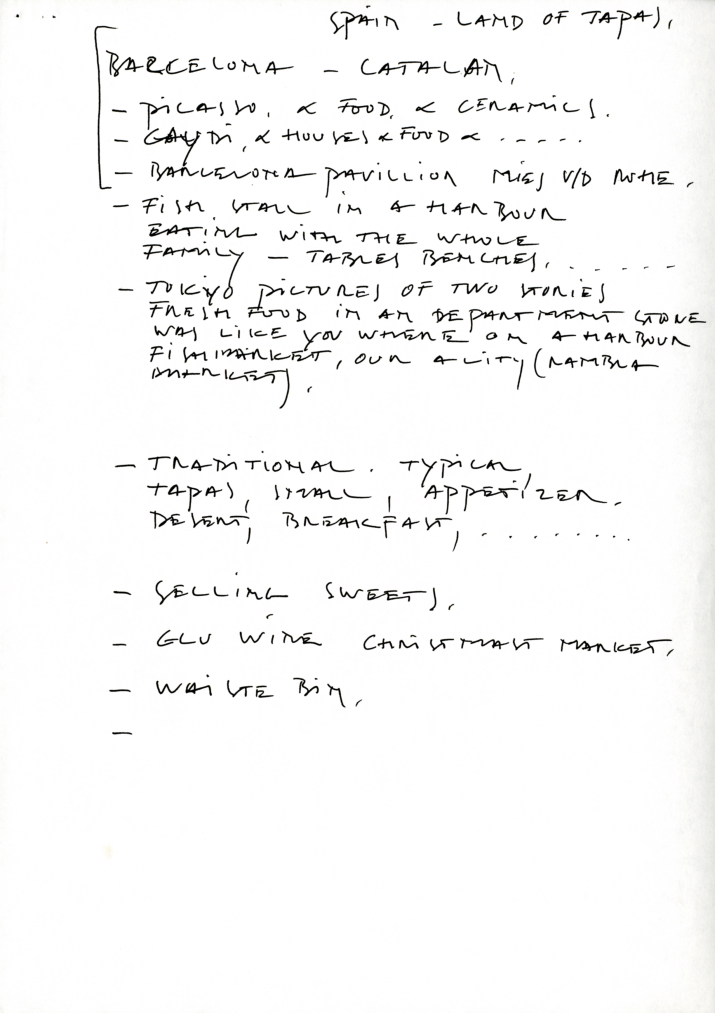 SPAIN - LAND OF TAPAS,
BARCELONA - CATALAN,
- PICASSO, & FOOD, & CERAMICS.
- GAUDI, & HOUSES & FOOD & .....
- BARCELONA PAVILLION MIES V/D ROHE,
- FISH STALL IN A HARBOUR
EATING WITH THE WHOLE
FAMILY - TABLES BENCHES, . . . . .
- TOKYO PICTURES OF TWO STORIES
FRESH FOOD IN AN DEPARTMENT STORE
WAS LIKE YOU WHERE ON A HARBOUR
FISHMARKET, OUR A CITY (RAMBLA
MARKET).
- TRADITIONAL. TYPICAL,
TAPAS, SMALL, APPETIZER.
DESERT, BREAKFAST, . . . . . . . .
- SELLING SWEETS,
- GLU WINE CHRISTMAST MARKET,
- WAISTE BIN,
-